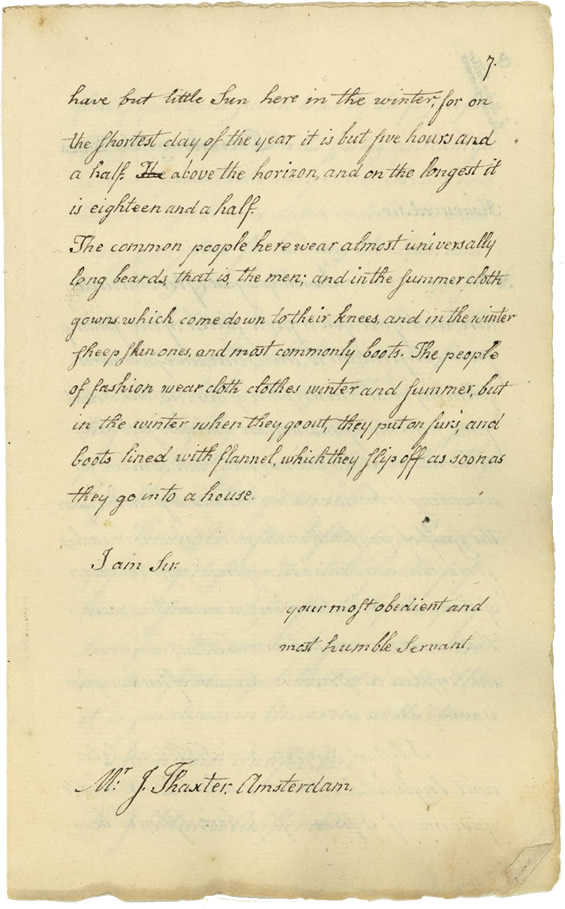 7.
have but little Sun here in the winter, for on
the shortest day of the year it is but five hours and
a half. The above the horizon, and on the longest it
is eighteen and a half.
The common people here wear almost universally
long beards, that is, the men; and in the summer cloth
gowns which come down to their knees, and in the winter
sheep skin ones, and most commonly boots. The people
of fashion wear cloth clothes winter and summer, but
in the winter when they go out, they put on furs, and
boots lined with flannel, which they slip off as soon as
they go into a house.
I am Sir.
your most obedient and
most humble Servant.
Mr. J. Thaxter, Amsterdam.